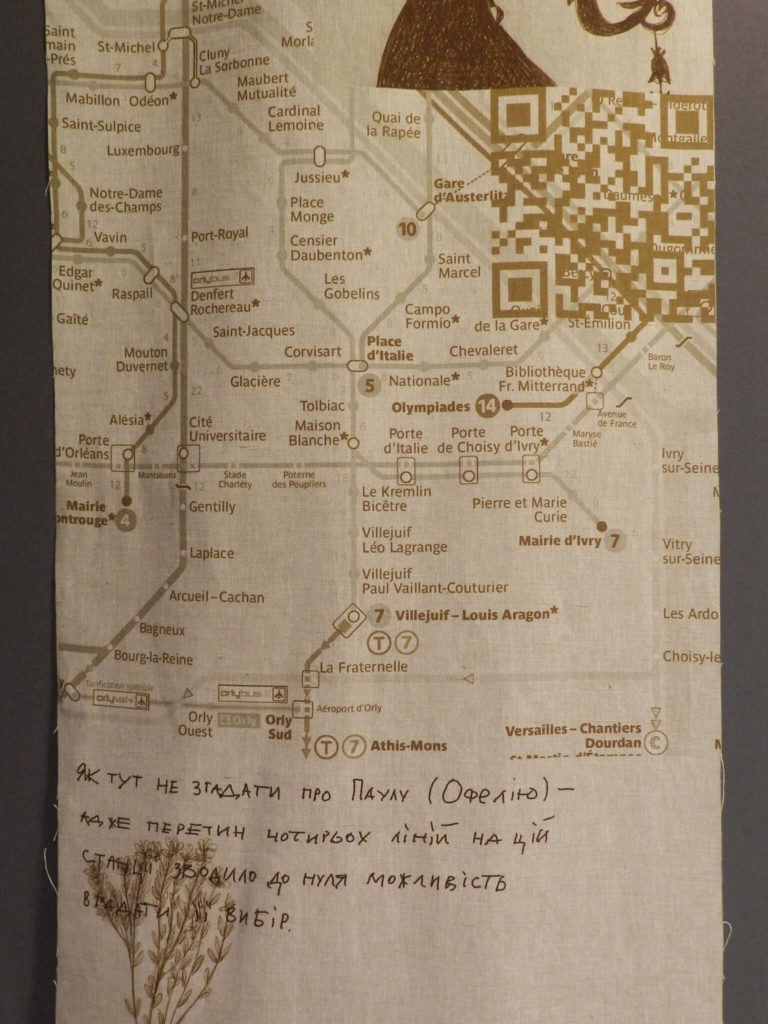 St-Michel
Notre-Dame
Saint
main
-Prés
St-Michel
Cluny
La Sorbonne
Maubert
Mutualité
Mabillon
Odéon*
Cardinal
Lemoine
Quai de
la Rapée
Saint-Sulpice
Luxembourg
Jussieu*
Gare
d'Austerlit
10
Notre-Dame
des-Champs
Place
Monge
Vavin
Port-Royal
Censier
Daubenton*
Saint
Marcel
Edgar
Quinet*
Raspail
orlybus
Denfert
Rochereau*
Les
Gobelins
Campo
Formio*
de la Gare*
St-Émilion
Gaîté
Saint-Jacques
Place
d'Italie
Corvisart
Chevaleret
13
Mouton
Duvernet
Glacière
5
Nationale*
Bibliothèque
Fr. Mitterrand*
Baron
Le Roy
Tolbiac
Olympiades 14
12
Avenue
de France
Alésia*
Cité
Universitaire
Maison
Blanche*
Porte
d'Italie
Porte
de Choisy
Porte
d'Ivry*
Maryse
Bastié
Porte
d'Orléans
Ivry
sur-Seine
Jean
Moulin
12
Montsouris
12
Stade
Charléty
Poterne
des Peupliers
Le Kremlin
Bicêtre
Pierre et Marie
Curie
Mairie
ontrouge* 4
Gentilly
Mairie d'Ivry 7
Villejuif
Léo Lagrange
Laplace
Vitry
sur-Seine
Villejuif
Paul Vaillant-Couturier
Arcueil–Cachan
7 Villejuif–Louis Aragon*
Les Ardo
Bagneux
T 7
Bourg-la-Reine
La Fraternelle
Choisy-le
Tarification spéciale
orlyval
orlybus
Aéroport d'Orly
Orly
Ouest
Orly
Sud
T 7 Athis-Mons
Versailles–Chantiers
Dourdan C
Як тут не згадати про Паулу (Офелію) –
адже перетин чотирьох ліній на цій
станції зводило до нуля можливість
вгадати її вибір.